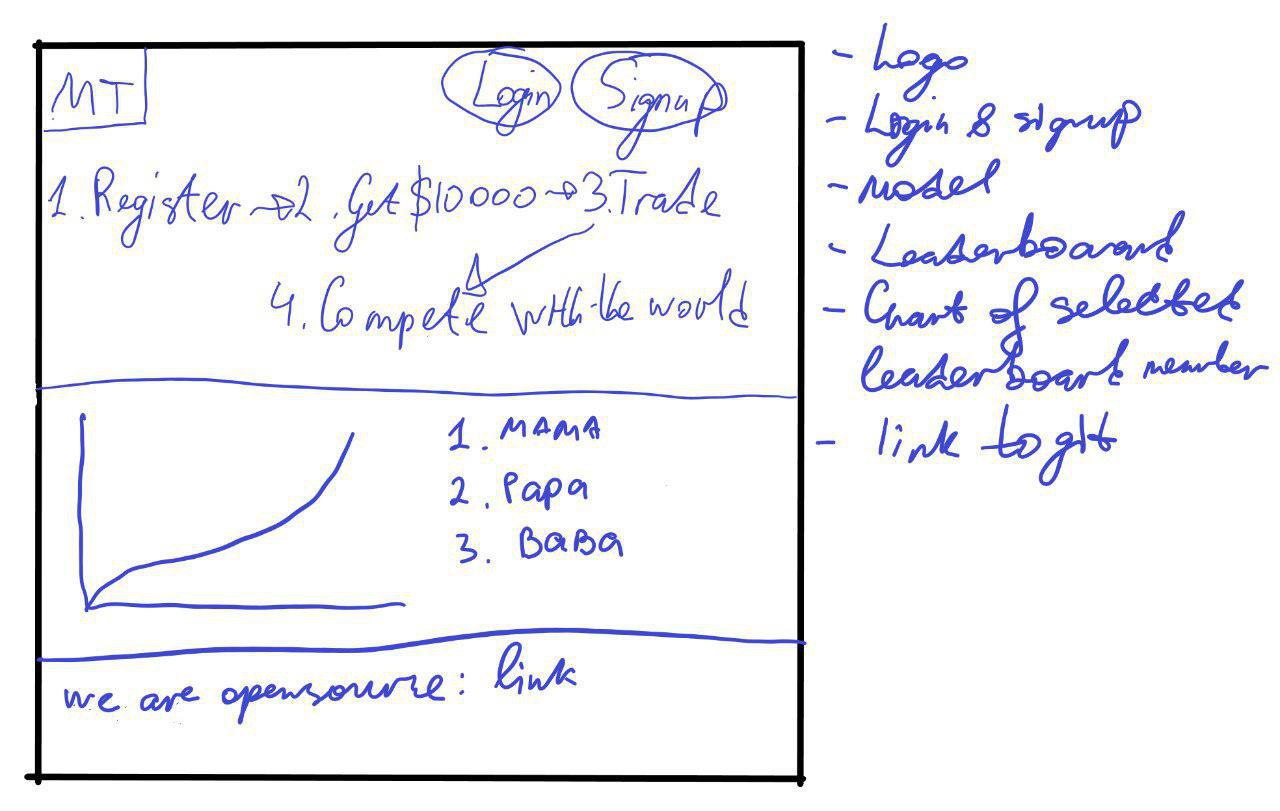 MT
Login Signup
1. Register → 2. Get $10000 → 3. Trade
4. Compete with the world
1. MAMA
2. Papa
3. BaBa
we are opensource: link
- Logo
- Login & signup
- Model
- Leaderboard
- Chart of selected
leaderboard member
- link to git